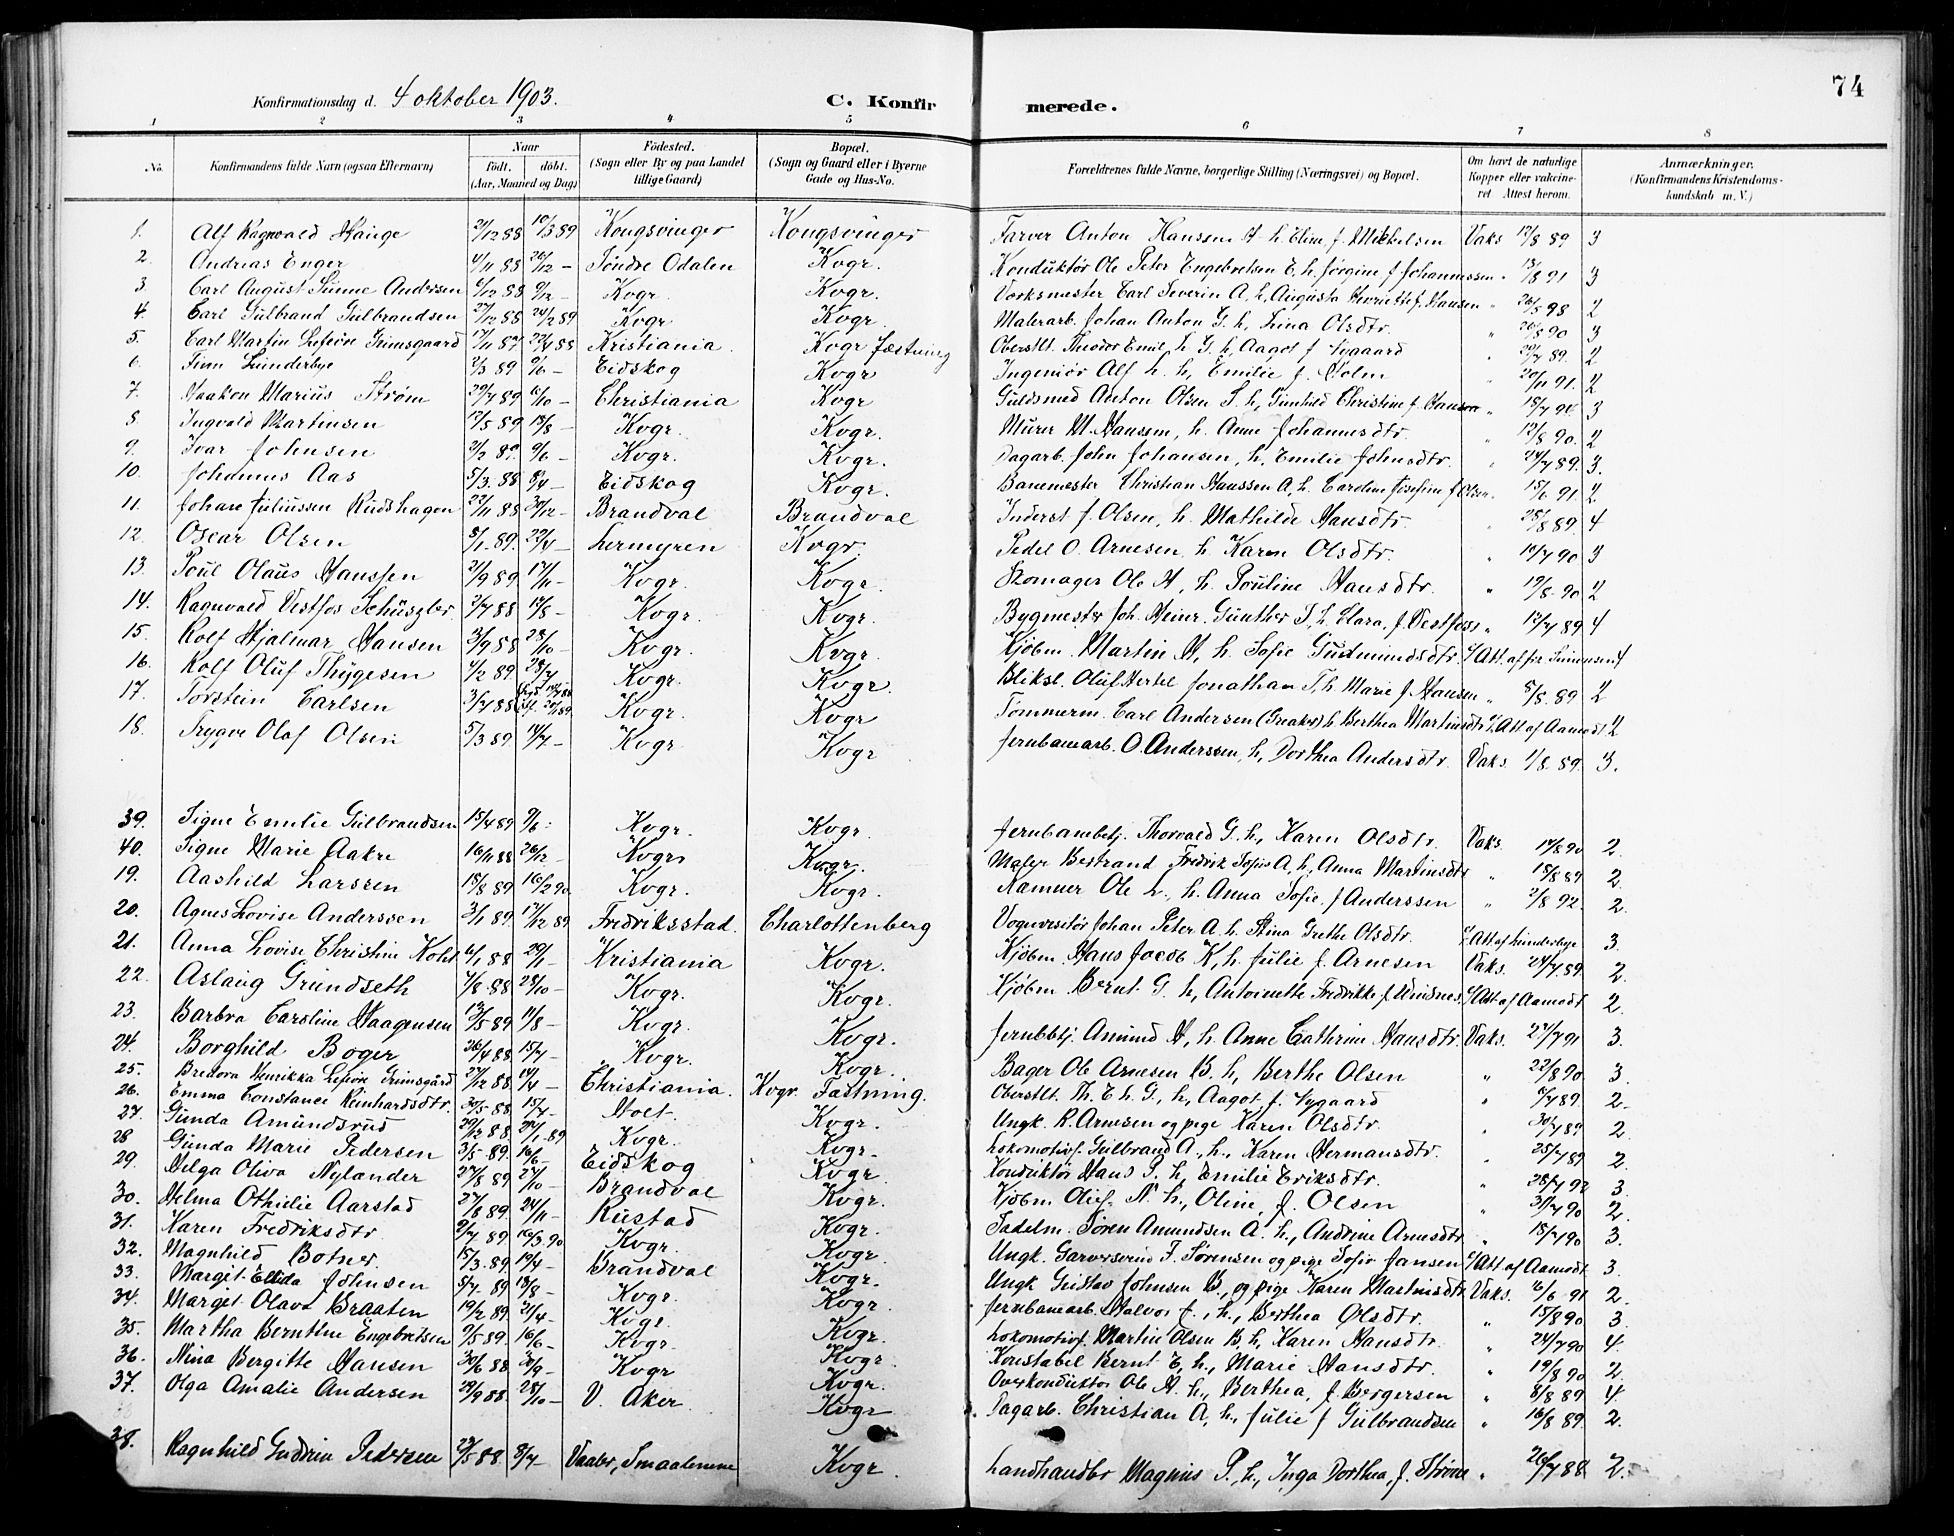 74
Konfirmationsdag d. 4 oktober 1903. C. Konfirmerede.
1 2 3 4 5 6 7 8
No. Konfirmandens fulde Navn (ogsaa Efternavn) Naar født. døbt. (Aar, Maaned og Dag) Fødested. (Sogn eller By og paa Landet tillige Gaard) Bopæl. (Sogn og Gaard eller i Byerne Gade og Hus-No.) Forældrenes fulde Navne, borgerlige Stilling (Næringsvei) og Bopæl. Om havt de naturlige Kopper eller vakcineret Attest herom. Anmærkninger. (Konfirmandens Kristendomskundskab m. V.)
1. Alf Ragnvald Hauge 21/12 88 10/3 89 Kongsvinger Kongsvinger Farver Anton Hanssen H. h. Elina f. Mikkelsen Vaks 12/8 89 3
2. Andreas Enger 4/11 88 26/12 — Søndre Odalen Kvgr. Konduktør Ole Peter Engebretsen E. h. Jørgine f. Johannessen " 13/8 91 3
3 Carl August Sünne Andersen 6/12 88 9/12 — Kvgr. Kvgr. Verksmester Carl Severin A, h, Augusta Henriette f. Hansen " 26/5 98 2
4. Carl Gulbrand Gulbrandsen 27/12 88 24/2 89 Kvgr. Kvgr. Malerarb. Johan Anton G. h, Lina Olsdtr. " 20/8 90 3
5. Carl Martin Grimsgaard 22/4 88 Kristiania Kvgr Fæstning Oberstlt. Theodor Emil L. G. h, Aagot f. Nygaard " 29/7 89. 2
6. Finn Lunderbye 2/3 89 9/6 — Eidskog Kvgr Ingeniør Alf L. h, Emilie f. Holm " 20/11 91. 2
7. Haakon Marius Strøm 29/7 89 6/10 — Christiania Kvgr Guldsmed Anton Olsen S. h, Gunhild Christine f. Hansen " 3
8. Ingvald Martinsen 12/5 89 18/8 — Kvgr. Kvgr. Murer M. Hansen, h. Anne Johannesdtr. " 12/8 90. 2
9. Ivar Johnsen 2/2 89. 9/6 — Kvgr. Kvgr. Dagarb. John Johansen, h. Emilie Johnsdtr. " 24/7 89. 3.
10. Johannes Aas 5/3. 88 8/4 — Eidskog Kvgr. Banemester Christian Hanssen A, h. Caroline Josefine f. Olsen " 15/6 91. 2
11. Johan Juliussen Rudshagen 22/11 88 30/12 — Brandval Brandval Inderst J. Olsen, h. Mathilde Hansdtr. " 28/8 89 4
12. Oscar Olsen 8/1 89. 22/4 — Kvgr. Pedel O. Arnesen h. Karen Olsdtr. " 19/7 90 3
13. Poul Olaus Hanssen 21/9 89 17/11 — Kvgr. Kvgr. Skomager Ole H, h. Pouline Hansdtr. " 19/8. 90 2
14. Ragnvald Vestfos Schüszler 2/7 88 19/8 — Kvgr. Kvgr. Bygmester Joh. Heinr. Günther S, h. Clara, f. Vestfoss " 12/7 89 4
15. Rolf Hjalmar Hansen 3/9 88 28/10 — Kvgr. Kvgr. Kjøbm. Martin H, h. Sofie Gudmundsdtr.
16. Rolf Oluf Thygesen 4/2 89. 28/4 Kvgr. Kvgr. Bliksl. Oluf Hertel Jonathan T. h. Marie f. Hansen " 8/8. 89 2
17. Torstein Carlsen 3/7 88 Kvgr. Kvgr Tømmerm. Carl Andersen h. Berthea Martinsdtr. Att. af Aamodt 2
18. Trygve Olaf Olsen 5/3 89. 14/7 — Kvgr. Kvgr. Jernbanearb. O. Anderssen, h, Dorthea Andersdtr. Vaks. 1/8. 89. 3.
39. Signe Emilie Gulbrandsen 15/4 89 9/6 — Kvgr. Kvgr. Jernbanebtj. Thorvald G. h, Karen Olsdtr. Vaks. 14/8 90 2.
40. Signe Marie Aakre 16/11 88 26/12 — Kvgr. Kvgr. Maler Bertrand Fredrik Sofus A, h, Anna Martinsdtr. " 18/8 89 2.
19. Aashild Larssen 18/8 89 16/2 90 Kvgr. Kvgr. Kamner Ole L., h. Anna Sofie f. Anderssen " 2/8 92. 2.
20. Agnes Lovise Anderssen 3/1 89. 17/12 89 Fredriksstad. Charlottenberg Vognvisitør Johan Peter A. h. Stina Grethe Olsdtr. Att. af Lunderbye 3.
21. Anna Lovise Christine 6/1 88 29/1 — Kristiania Kvgr. Kjøbm. Hans Jacob K, h. Julie f. Arnesen Vaks. 24/7. 89. 2.
22. Aslaug Grundseth 4/8 88 28/10 — Kvgr. Kvgr. Kjøbm Bernt G. h, Antoinette Fredrikke f. Att. af Aamodt 2.
23. Barbra Caroline Haagensen 13/5 89 11/8 — Kvgr. Kvgr. Jernbbtj. Amund H, h. Anne Cathrine Hansdtr. Vaks. 27/7 91 3.
24. Borghild Boger 26/4 88. 15/7 — Kvgr. Kvgr. Bager Ole Arnesen B. h, Berthe Olsen " 22/8 90. 3.
25. Bredova Henrikka Grimsgård 27/12 88 14/4 — Christiania. Kvgr. Fæstning. Oberstlt. Th. E. L. G., h, Aagot f. Nygaard " 6/7 89. 2.
26. Emma Constance Reinhardsdtr. 30/5 88. 15/7 — Kvgr. Ungk. R. Arnesen og pige Karen Olsdtr. " 30/7 89 2.
27. Gunda Amundsrud 29/12 88. 27/1 89 Kvgr. Kvgr. Lokomotivf. Gulbrand A., h., Karen Hermansdtr. " 25/7 89 2.
28 Gunda Marie Pedersen 3/5 89. 16/6 — Eidskog Kvgr. Konduktør Hans P. h, Emilie Eriksdtr. " 28/7 92 3.
29. Helga Oliva Nylander 27/8 89 27/10 — Brandval Kvgr. Kjøbm. Oluf N. h., Oline, f. Olsen " 31/7 90 2.
30. Helma Othilie Aarstad 27/8 89. 24/11 — Rustad Kvgr. Sadelm. Søren Amundsen A. h., Andrine Arnesdtr. " 15/7 90 3.
31. Karen Fredriksdtr. 9/7 89 16/3 90 Kvgr. Kvgr. Ungk. Garversvend F. Sørensen og pige Sofie Jansen Att. af Aamodt. 3.
32. Magnhild Botner 15/3. 89. 19/4 — Brandval Kvgr. Ungk Gustav Johnsen B., og pige Karen Martinsdtr. Vaks. 16/6 91 2.
33. Margit Ellida Johnsen 5/7 89 18/8 — Kvgr. Kvgr. Jernbanearb. Halvor J., h., Berthea Olsdtr. " 15/8 90 3.
34. Margit Olava Braaten 19/2 89. 21/4 — Kvgr. Kvgr. Lokomotivf. Martin Olsen B. h, Karen Hansdtr. " 24/7 90 4.
35. Martha Berntine Engebretsen 9/5 89. 16/6 — Kvgr. Kvgr. Konstabel Bernt E, h., Marie Hansdtr. " 19/8 90 2.
36. Nina Bergitte Hansen 30/6 88. 30/9 — Kvgr Kvgr. Overkonduktør Ole H. h., Berthea, f. Bergersen " 8/8 89 4
37. Olga Amalie Andersen 29/9 88. 28/10 — V. Aker. Kvgr Dagarb. Christian A, h., Julie f Gulbrandsen " 16/8 89. 2.
38. Ragnhild Gudrun Pedersen 23/5 88. 8/7 — Vaaler, Smaalenene Kvgr. Landhandler Magnus P., h., Inga Dorthea, f. Strøm " 26/7 88 2.